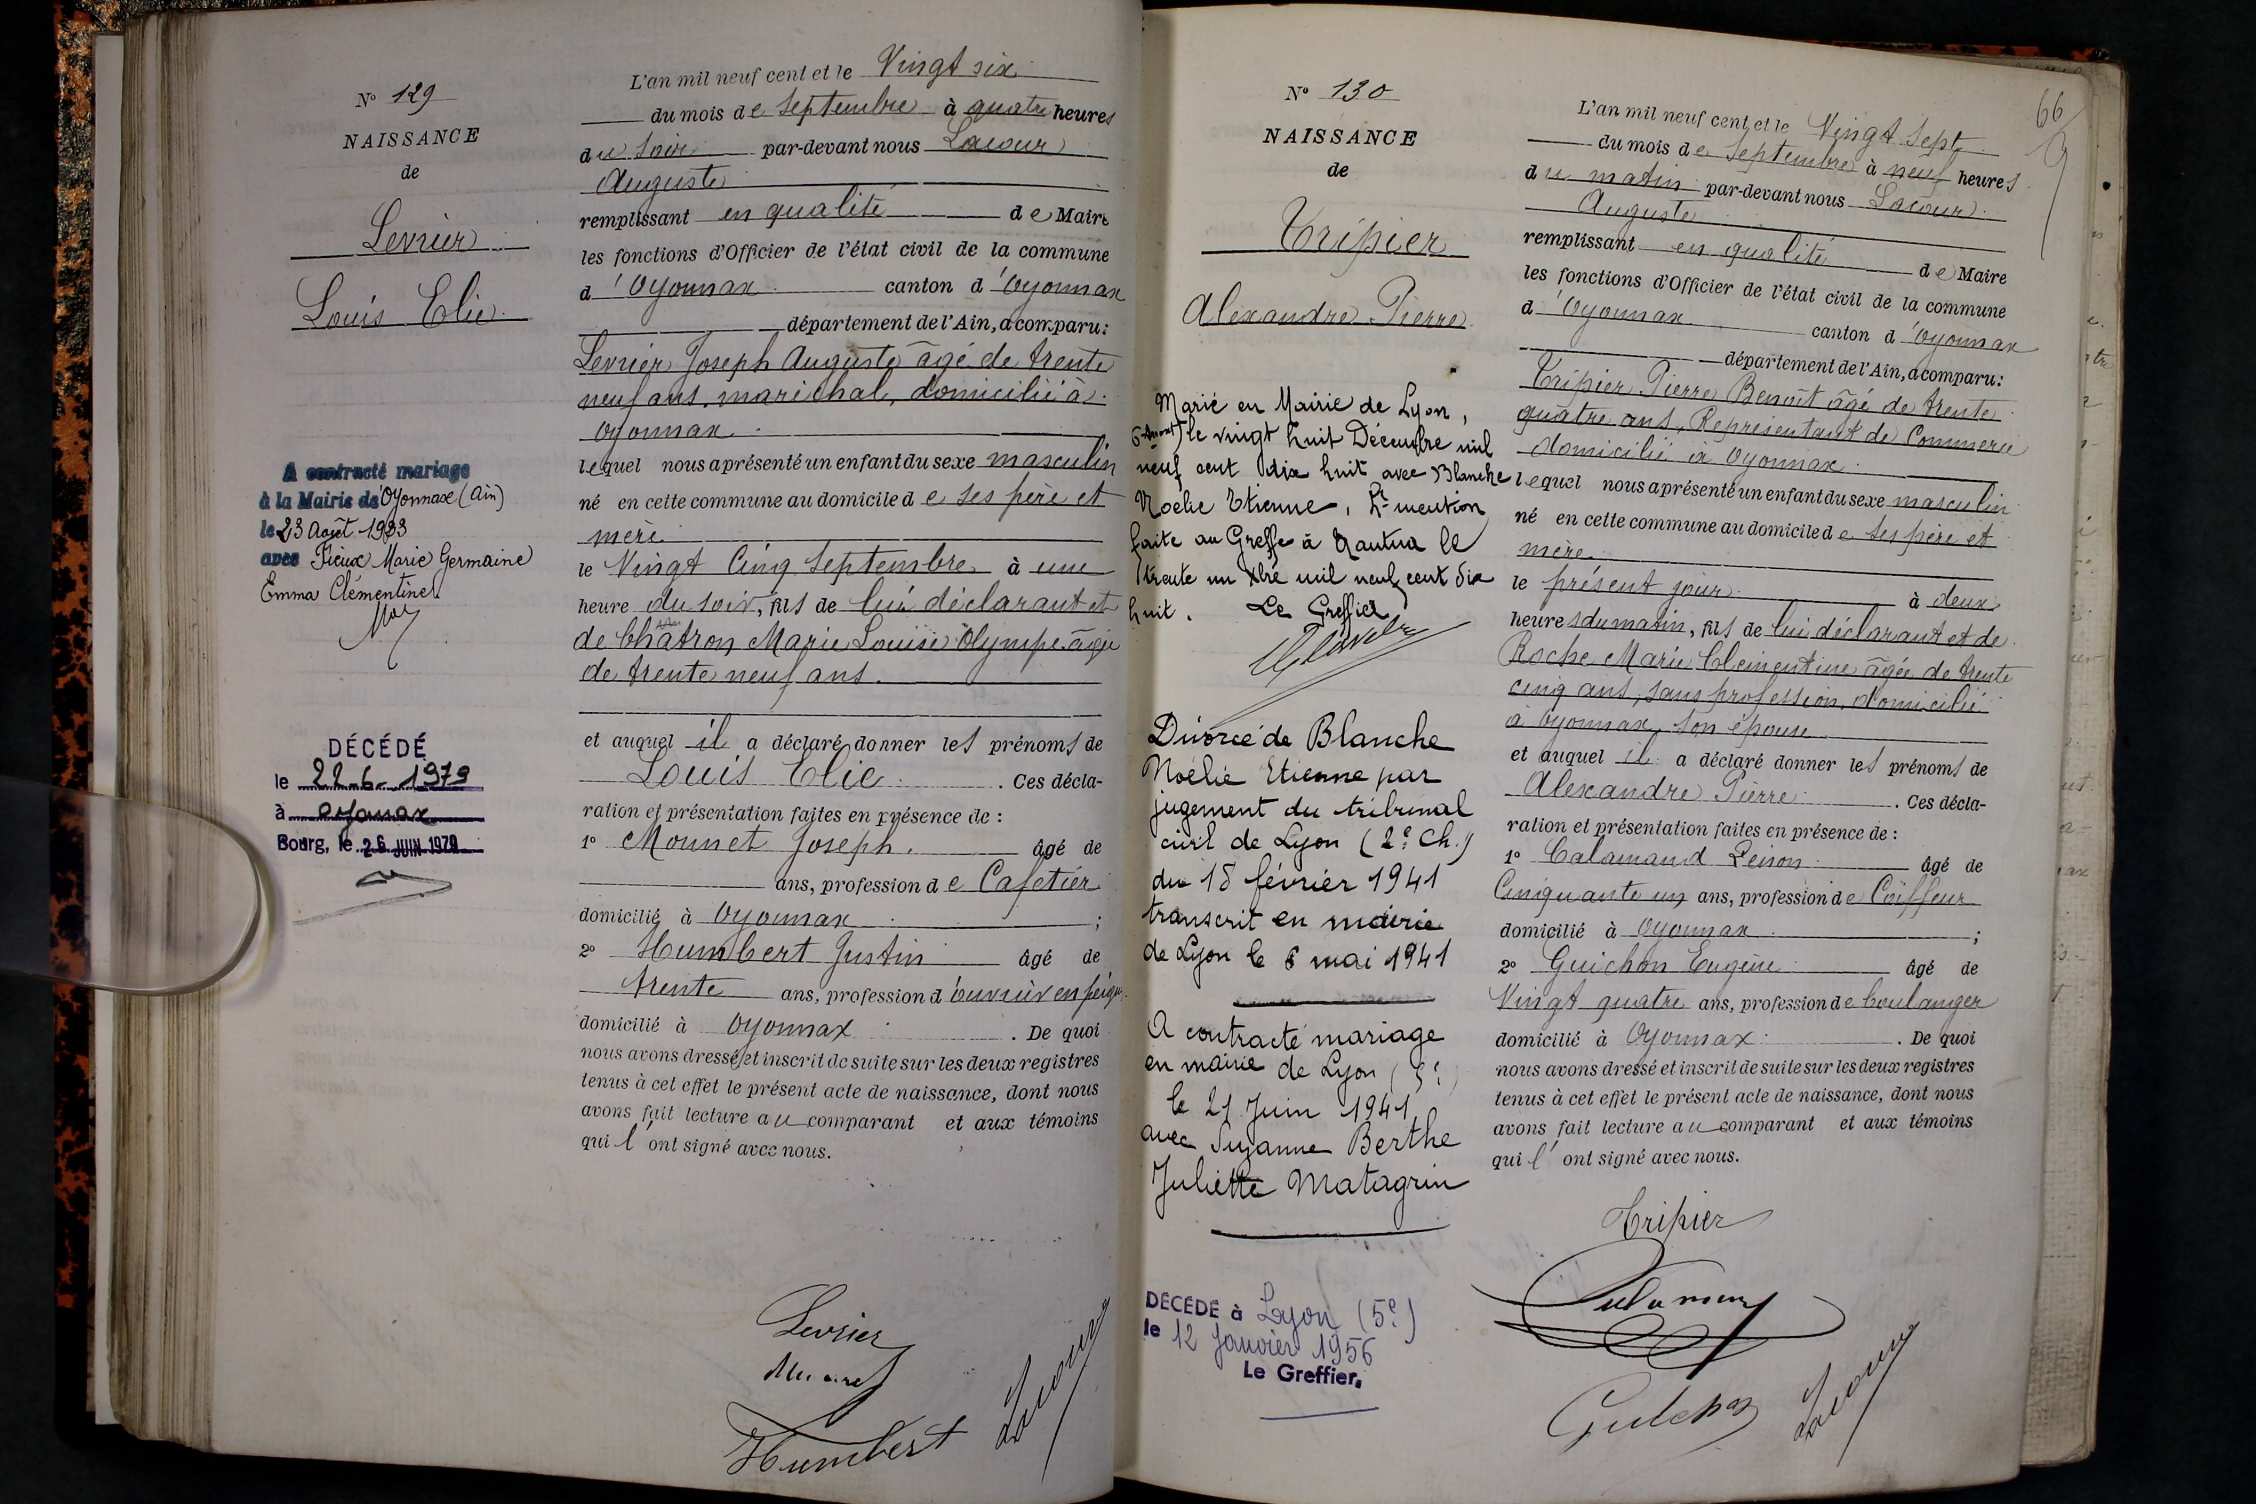 N° 129
NAISSANCE
de
Levrier
Louis Elie
A contracté mariage
à la Mairie de Oyonnax (Ain)
le 23 Août 1933
avec Fieux Marie Germaine
Emma Clémentine
DÉCÉDÉ
le 22-6-1979
à oyonnax
Bourg, le 26 JUIN 1979
L'an mil neuf cent et le Vingt six
du mois de Septembre à quatre heures
du soir par-devant nous Lacour
Auguste
remplissant en qualité de Maire
les fonctions d'Officier de l'état civil de la commune
d'Oyonnax canton d'Oyonnax
département de l'Ain, a comparu:
Levrier Joseph Auguste âgé de trente
neuf ans, maréchal, domicilié à
Oyonnax
lequel nous a présenté un enfant du sexe masculin
né en cette commune au domicile de ses père et
mère
le Vingt Cinq Septembre à une
heure du soir, fils de lui déclarant et
de Chatron Marie Louise Olympe âgée
de trente neuf ans.
et auquel il a déclaré donner les prénoms de
Louis Elie. Ces décla-
ration et présentation faites en présence de :
1° Monnet Joseph. âgé de
ans, profession de Cafetier
domicilié à Oyonnax ;
2° Humbert Justin âgé de
trente ans, profession d'ouvrier en peign.
domicilié à Oyonnax. De quoi
nous avons dressé et inscrit de suite sur les deux registres
tenus à cet effet le présent acte de naissance, dont nous
avons fait lecture au comparant et aux témoins
qui l'ont signé avec nous.
Levrier
Monnet
Humbert
Lacour
66
N° 130
NAISSANCE
de
Tripier
Alexandre Pierre
Marié en Mairie de Lyon,
6e Arront) le vingt huit Décembre mil
neuf cent dix huit avec Blanche
Noëlie Etienne, Pr mention
faite au Greffe à Nantua le
trente un Xbre mil neuf cent dix
huit. Le Greffier
Divorcé de Blanche
Noëlie Etienne par
jugement du tribunal
civil de Lyon (2e Ch.)
du 18 février 1941
transcrit en mairie
de Lyon le 6 mai 1941
A contracté mariage
en mairie de Lyon (5e)
le 21 Juin 1941
avec Suzanne Berthe
Juliette Matagrin
DÉCÉDÉ à Lyon (5e)
le 12 Janvier 1956
Le Greffier,
L'an mil neuf cent et le Vingt Sept
du mois de Septembre à neuf heures
du matin par-devant nous Lacour
Auguste
remplissant en qualité de Maire
les fonctions d'Officier de l'état civil de la commune
d'Oyonnax canton d'Oyonnax
département de l'Ain, a comparu:
Tripier Pierre Benoît âgé de trente
quatre ans, Représentant de Commerce
domicilié à Oyonnax
lequel nous a présenté un enfant du sexe masculin
né en cette commune au domicile de ses père et
mère
le présent jour à deux
heures du matin, fils de lui déclarant et de
Roche Marie Clementine âgée de trente
cinq ans, sans profession, domicilié
à Oyonnax, son épouse
et auquel il a déclaré donner les prénoms de
Alexandre Pierre. Ces décla-
ration et présentation faites en présence de :
1° Calamand Zenon âgé de
Cinquante un ans, profession de Coiffeur
domicilié à Oyonnax ;
2° Guichon Eugène âgé de
Vingt quatre ans, profession de boulanger
domicilié à Oyonnax. De quoi
nous avons dressé et inscrit de suite sur les deux registres
tenus à cet effet le présent acte de naissance, dont nous
avons fait lecture au comparant et aux témoins
qui l'ont signé avec nous.
Tripier
Calamand
Guichon
Lacour